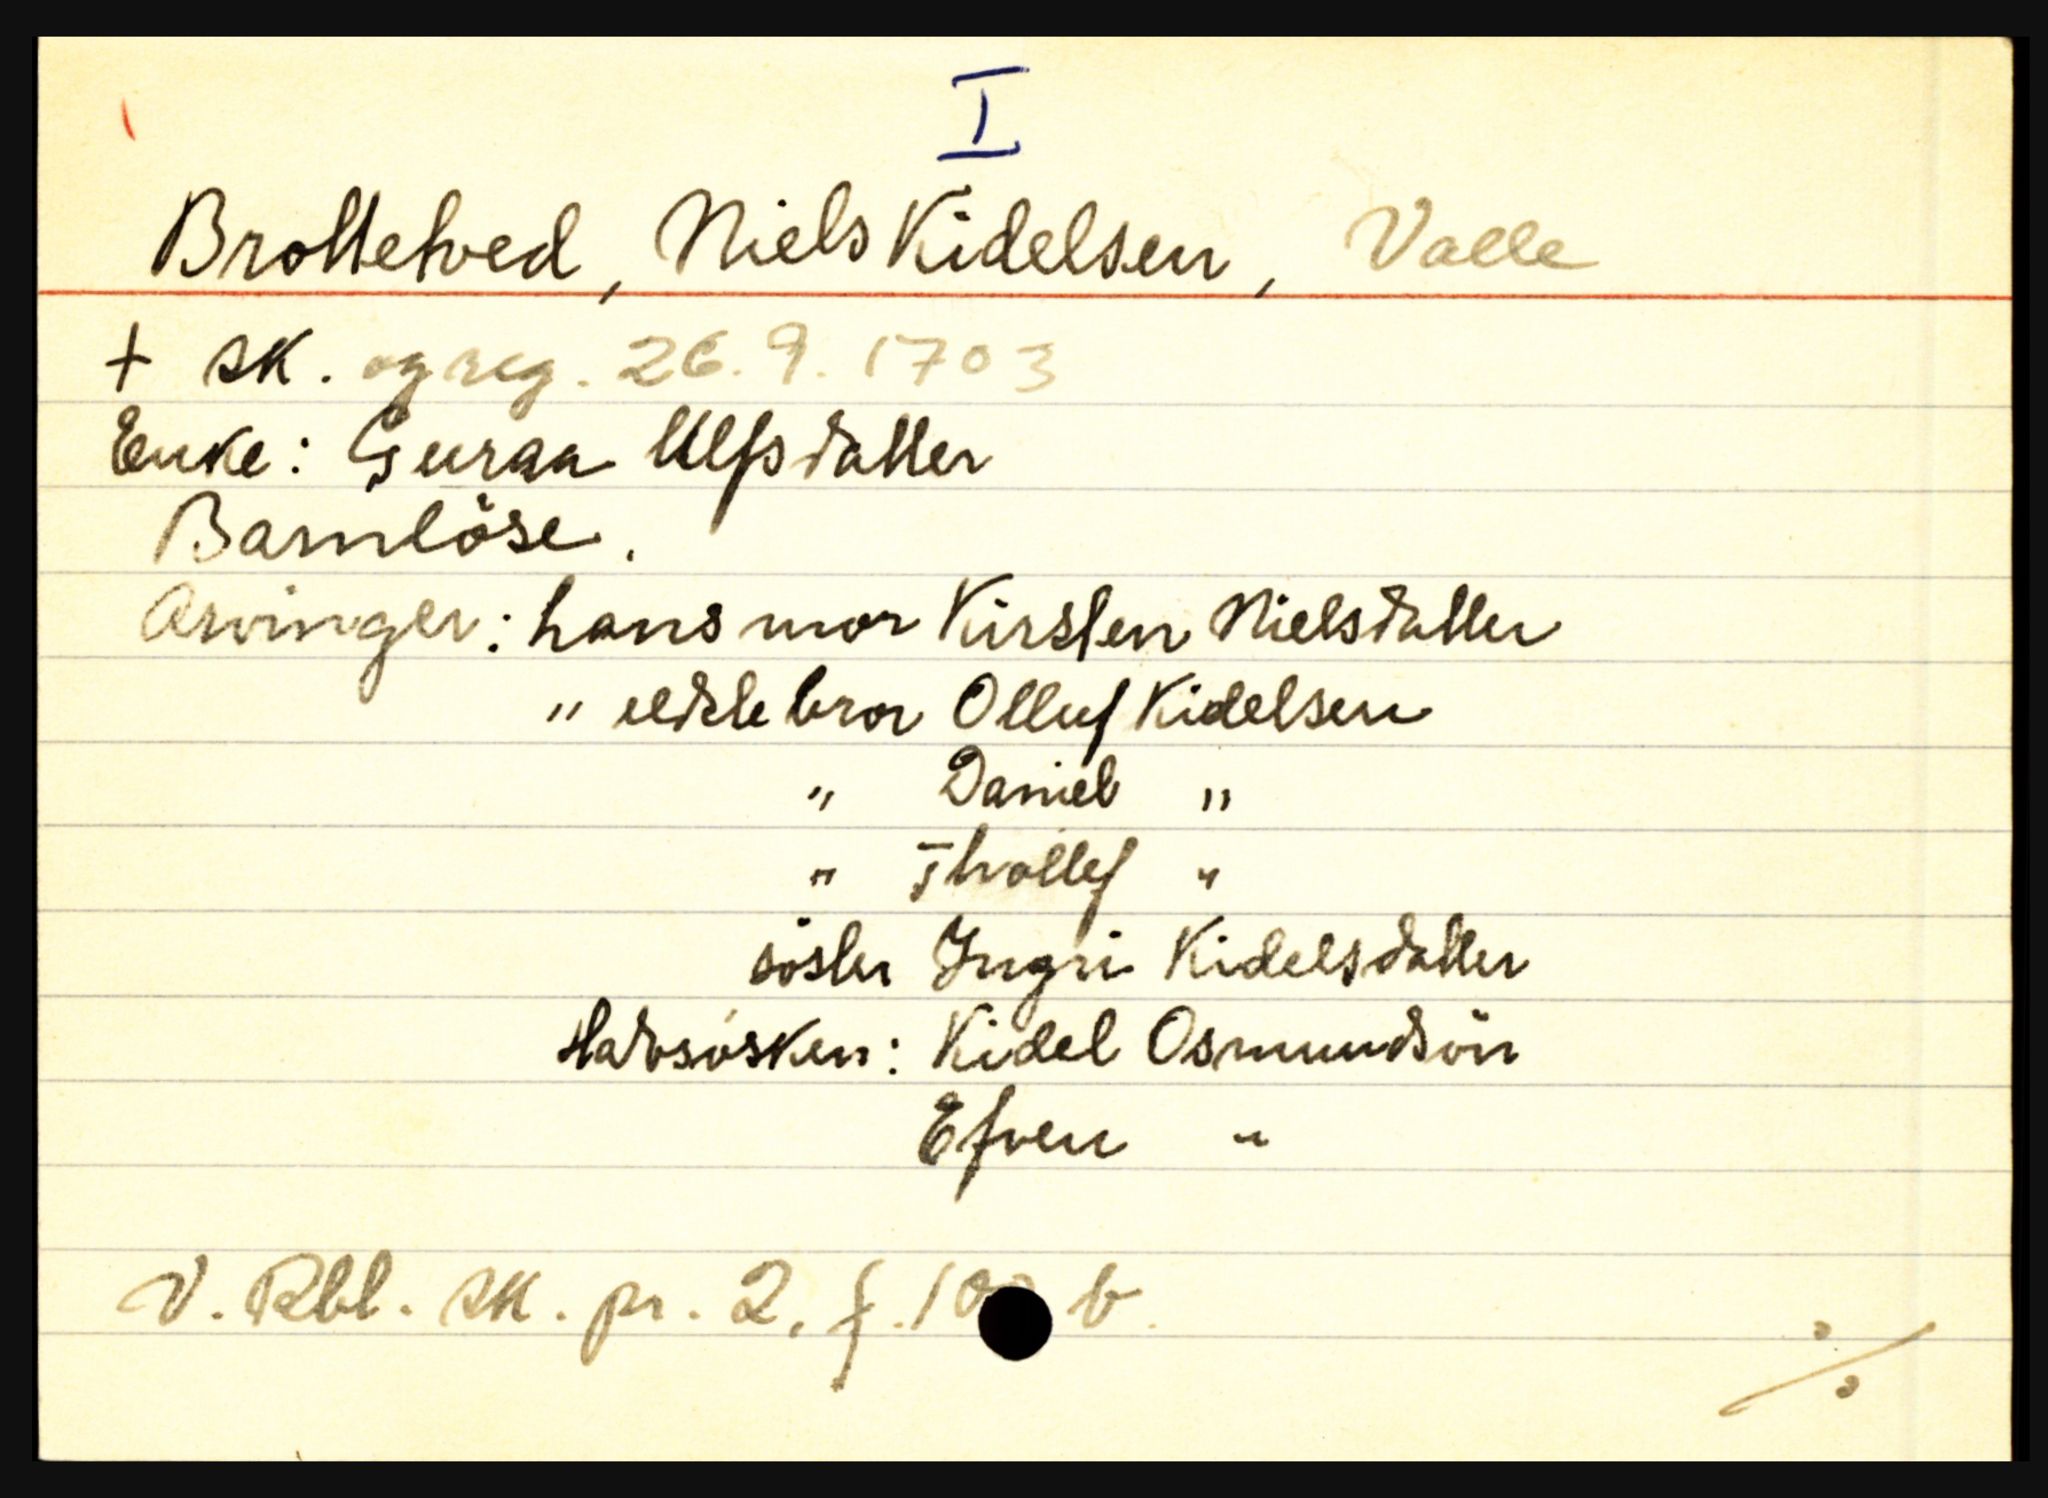 I
Brottetved, Niels Kidelsen, Valle
+ sk. og reg. 26.9.1703
Enke: Guraa Ulfsdatter
Barnlöse.
Arvinger: hans mor Kirsten Nielsdatter
" eldste bror Olluf Kidelsen
" Daniel "
" Thollef "
söster Ingri Kidelsdatter
Halvsösken: Kidel Osmundsön
Efven "
V. Rbl. sk. pr. 2, f. 10 b.